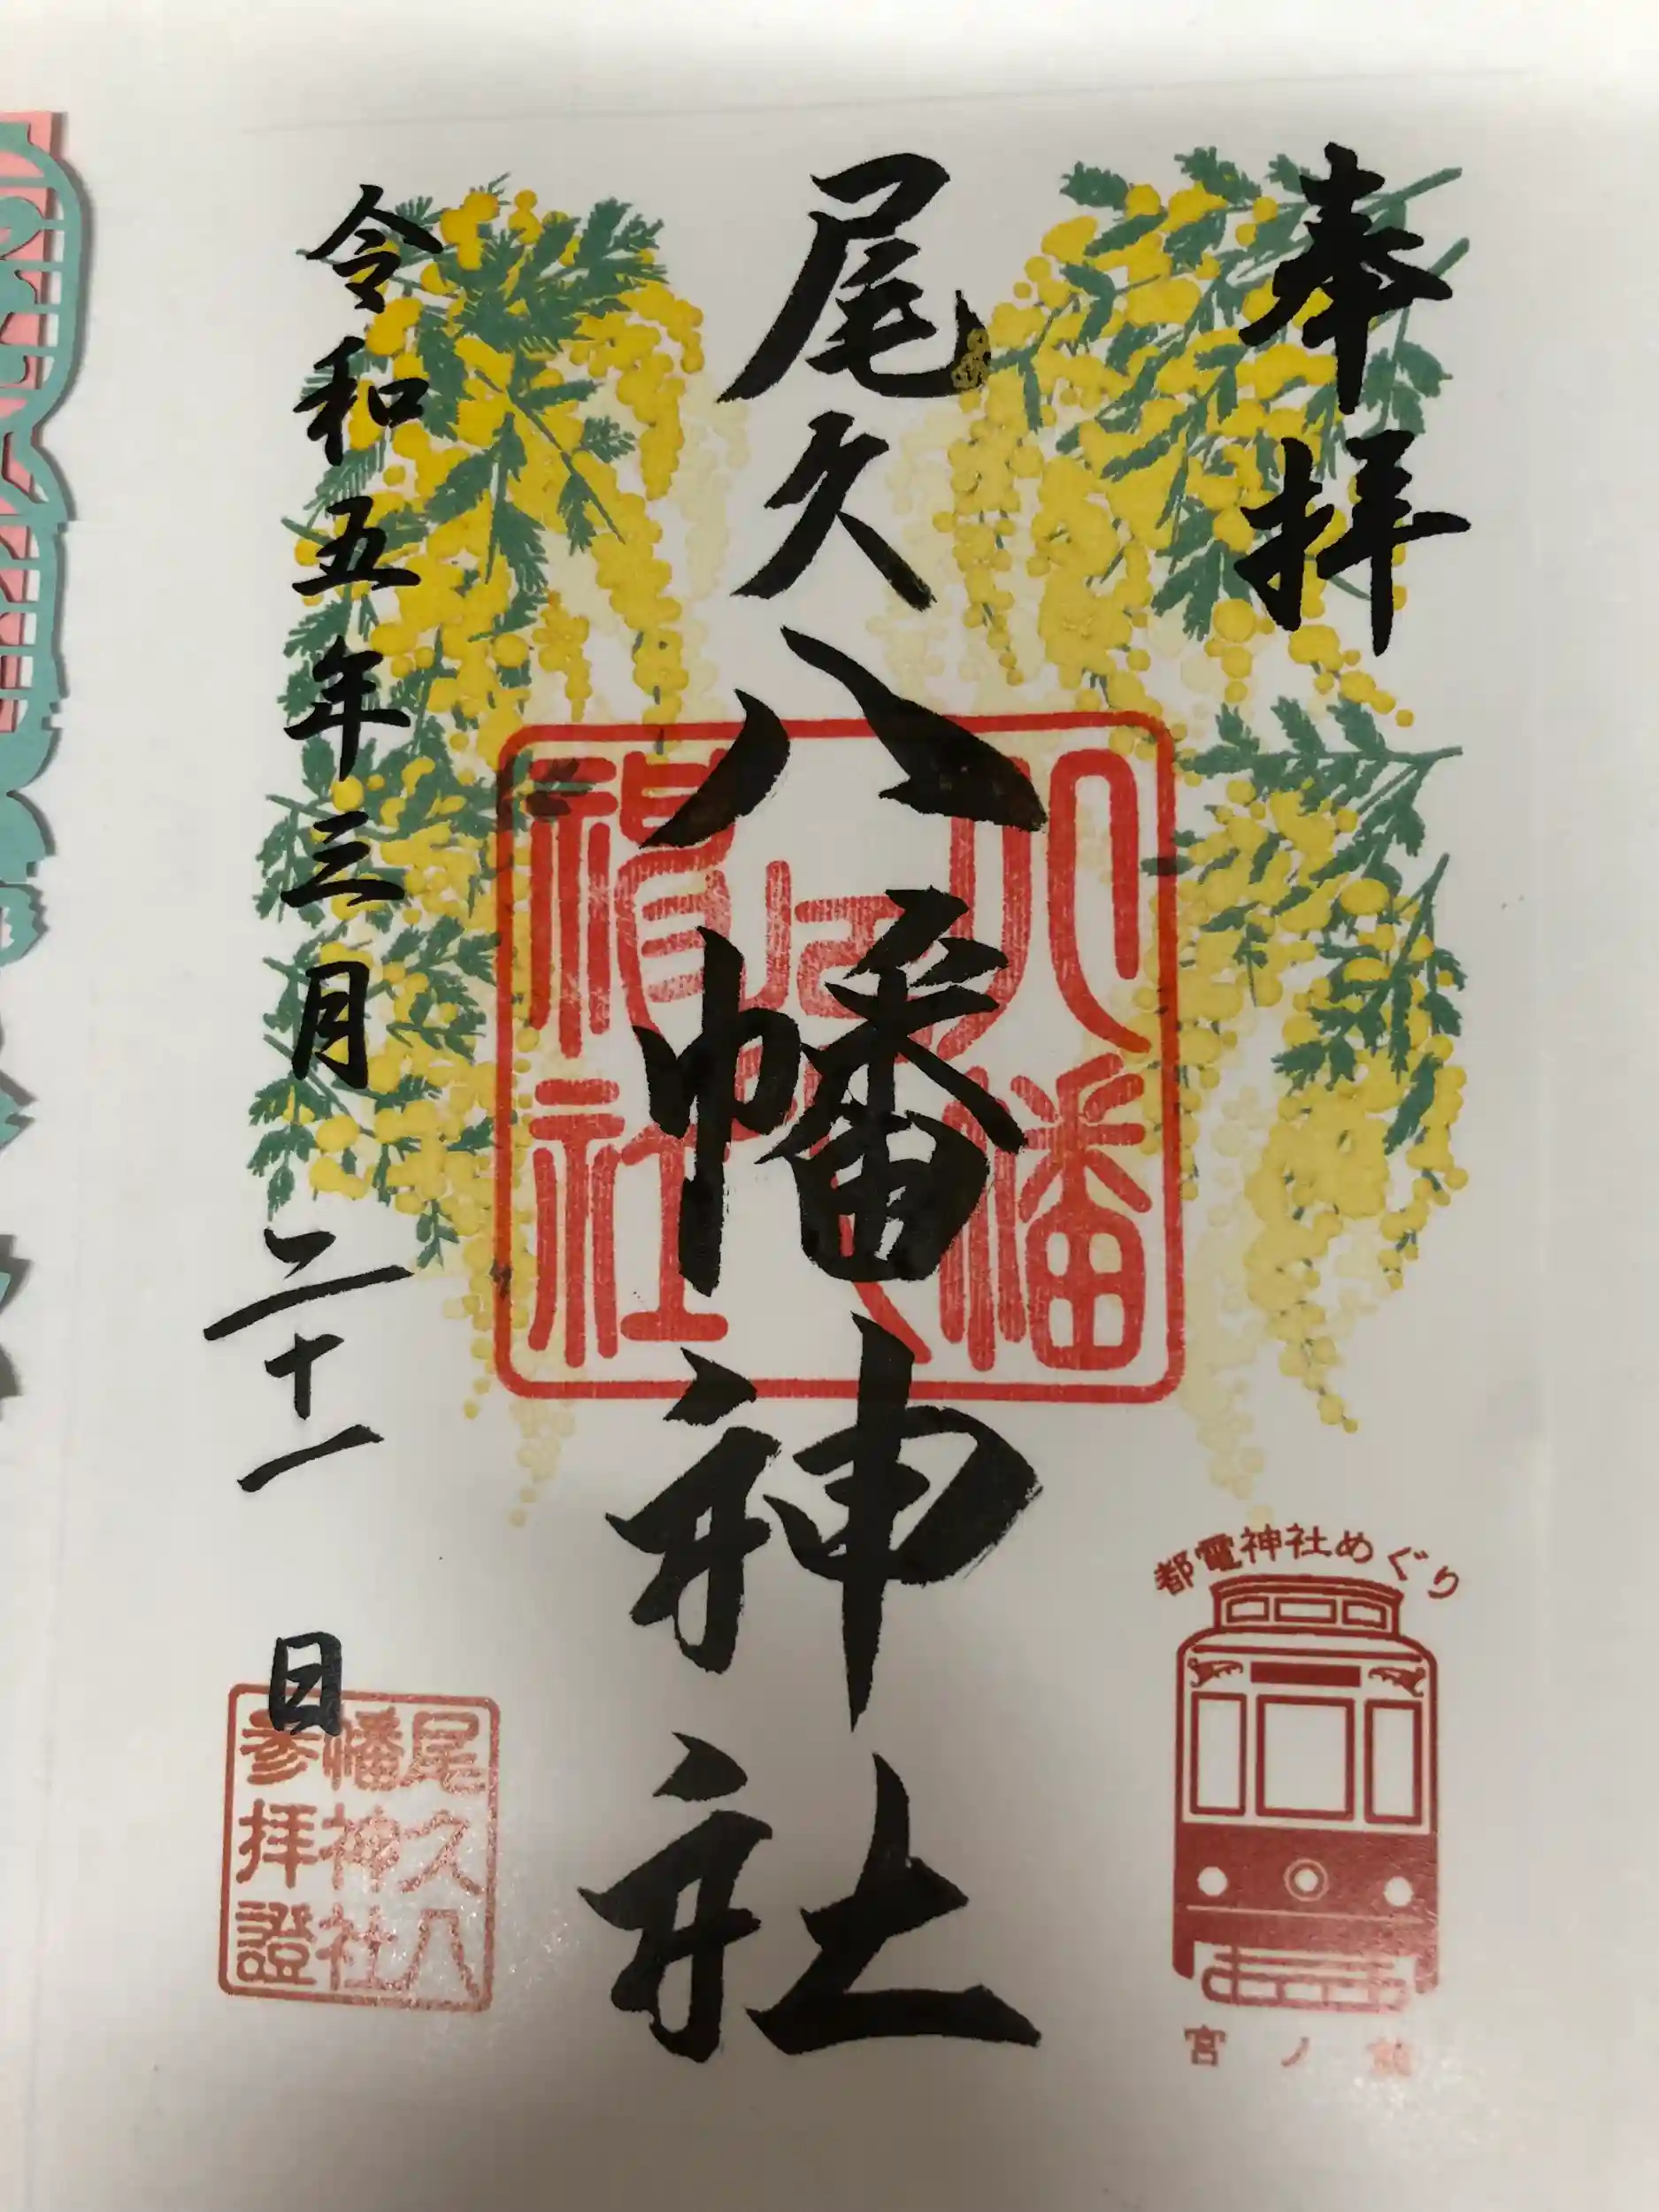 奉拝
尾久八幡神社
令和五年三月二十一日
八幡
神社
都電神社めぐり
宮ノ前
尾久八
幡神社
参拝證